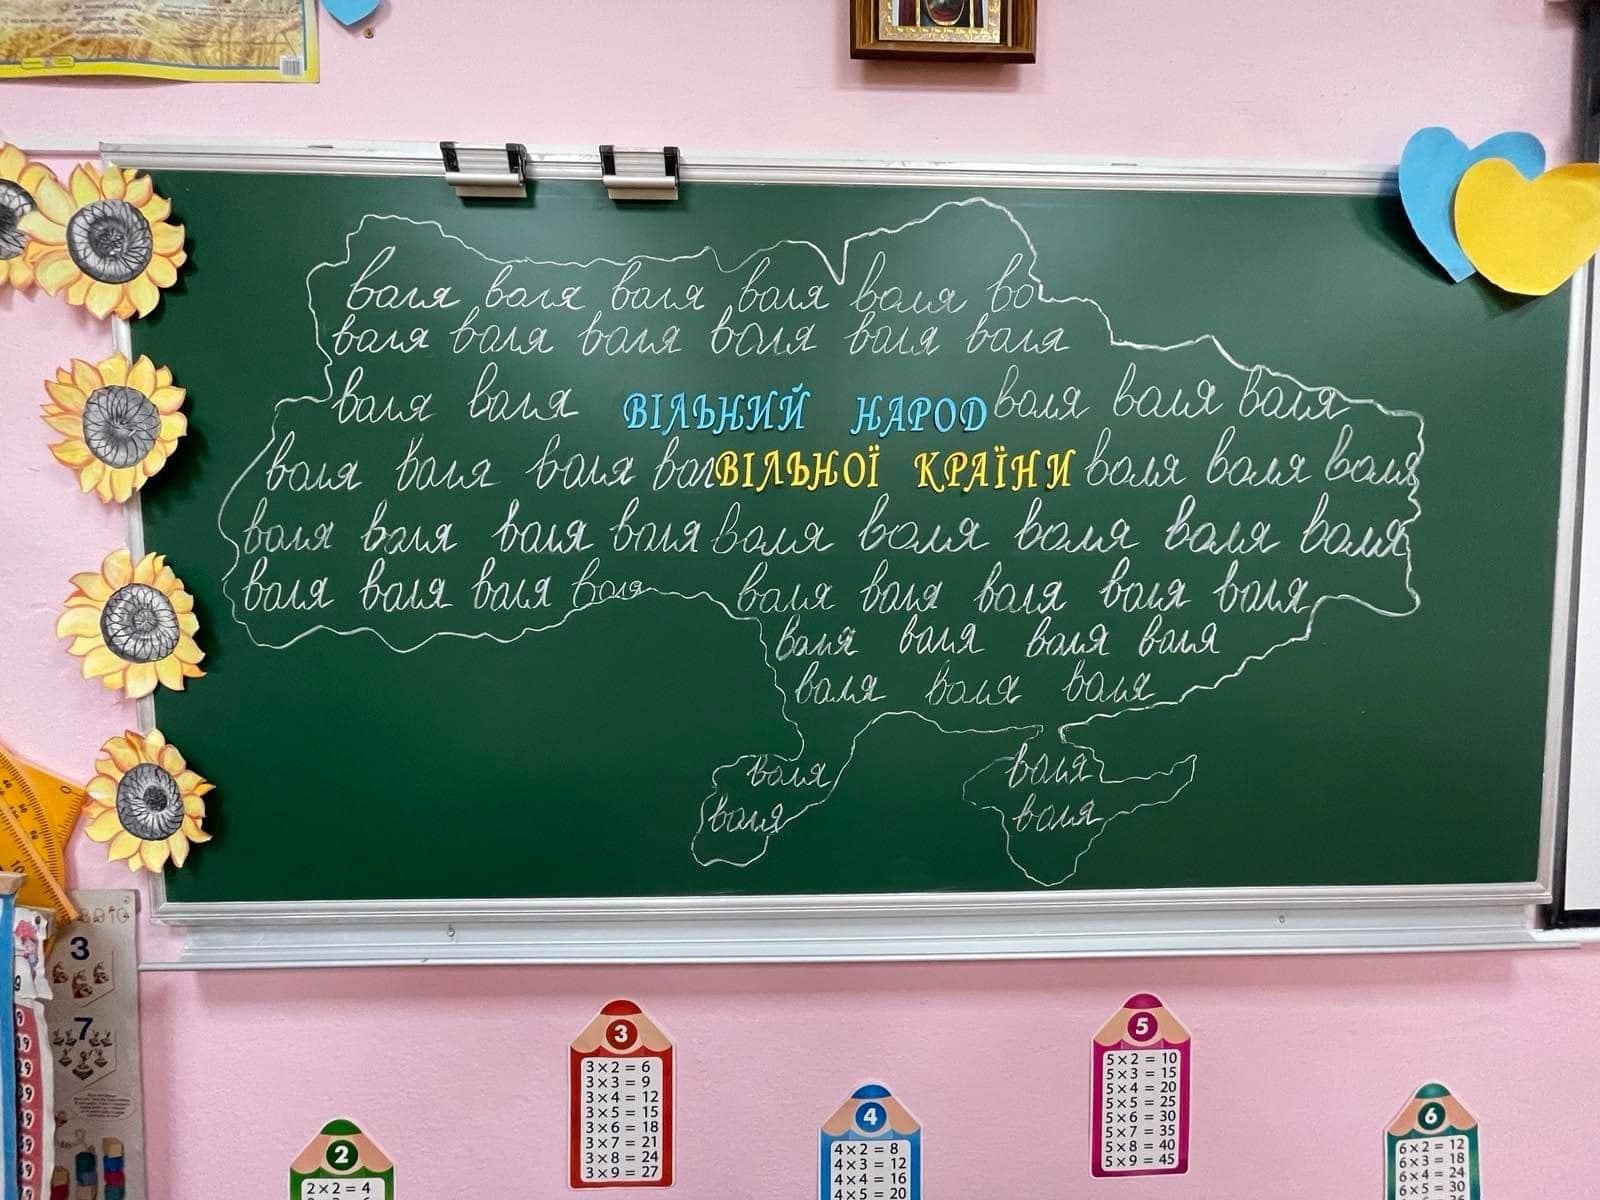 воля воля воля воля воля во
воля воля воля воля воля воля
воля воля ВІЛЬНИЙ НАРОД воля воля воля
воля воля воля вол ВІЛЬНОЇ КРАЇНИ воля воля воля
воля воля воля воля воля воля воля воля воля
воля воля воля воля воля воля воля воля воля
воля воля воля воля
воля воля воля
воля воля
воля воля
3
7
2
2 × 2 = 4
3
3 × 2 = 6
3 × 3 = 9
3 × 4 = 12
3 × 5 = 15
3 × 6 = 18
3 × 7 = 21
3 × 8 = 24
3 × 9 = 27
4
4 × 2 = 8
4 × 3 = 12
4 × 4 = 16
4 × 5 = 20
5
5 × 2 = 10
5 × 3 = 15
5 × 4 = 20
5 × 5 = 25
5 × 6 = 30
5 × 7 = 35
5 × 8 = 40
5 × 9 = 45
6
6 × 2 = 12
6 × 3 = 18
6 × 4 = 24
6 × 5 = 30